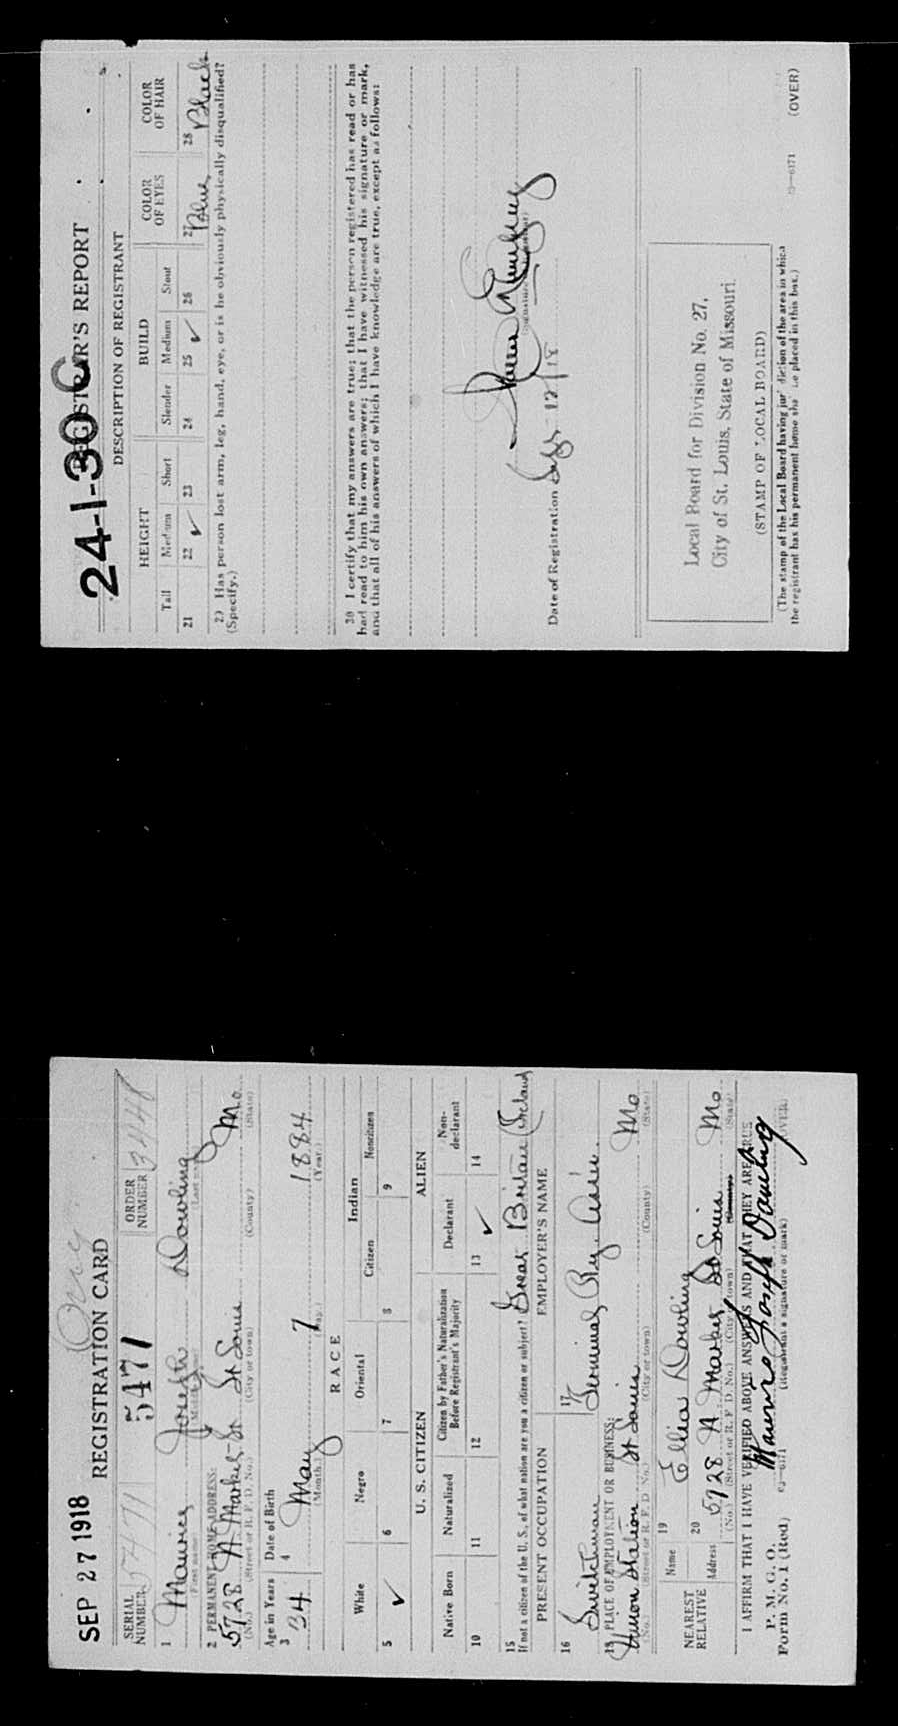 SEP 27 1918
REGISTRATION CARD
SERIAL NUMBER 5471 5471 ORDER NUMBER 3448
1 Maurice Joseph Dowling
(First name) (Middle name) (Last name)
2 PERMANENT HOME ADDRESS:
5728 N Market St St Louis Mo
(No.) (Street or R. F. D. No.) (City or town) (County) (State)
Age in Years Date of Birth
3 34 4 May 7 1884
(Month.) (Day.) (Year.)
RACE
White Negro Oriental Indian
Citizen Noncitizen
5 ✓ 6 7 8 9
U. S. CITIZEN ALIEN
Native Born Naturalized Citizen by Father's Naturalization Before Registrant's Majority Declarant Non-declarant
10 11 12 13 ✓ 14
15 If not a citizen of the U. S., of what nation are you a citizen or subject? Great Britain (Ireland
PRESENT OCCUPATION EMPLOYER'S NAME
16 Switchman 17 Terminal Ry. Assn.
18 PLACE OF EMPLOYMENT OR BUSINESS:
Union Station St Louis Mo
(No.) (Street or R. F. D. No.) (City or town) (County) (State)
NEAREST RELATIVE
Name 19 Ellia Dowling
Address 20 5728 N Market St Louis Mo
(No.) (Street or R. F. D. No.) (City or town) (County) (State)
I AFFIRM THAT I HAVE VERIFIED ABOVE ANSWERS AND THAT THEY ARE TRUE
P. M. G. O.
Form No. 1 (Red) 03—6171 Maurice Joseph Dowling
(Registrant's signature or mark) (OVER)
24-1-30 C
REGISTRAR'S REPORT
DESCRIPTION OF REGISTRANT
HEIGHT BUILD COLOR OF EYES COLOR OF HAIR
Tall Medium Short Slender Medium Stout
21 22 ✓ 23 24 25 ✓ 26 27 Blue 28 Black
29 Has person lost arm, leg, hand, eye, or is he obviously physically disqualified?
(Specify.)
30 I certify that my answers are true; that the person registered has read or has
had read to him his own answers; that I have witnessed his signature or mark,
and that all of his answers of which I have knowledge are true, except as follows:
Date of Registration Sept 12/18
Local Board for Division No. 27,
City of St. Louis, State of Missouri.
(STAMP OF LOCAL BOARD)
(The stamp of the Local Board having jurisdiction of the area in which
the registrant has his permanent home shall be placed in this box.)
03—6171 (OVER)